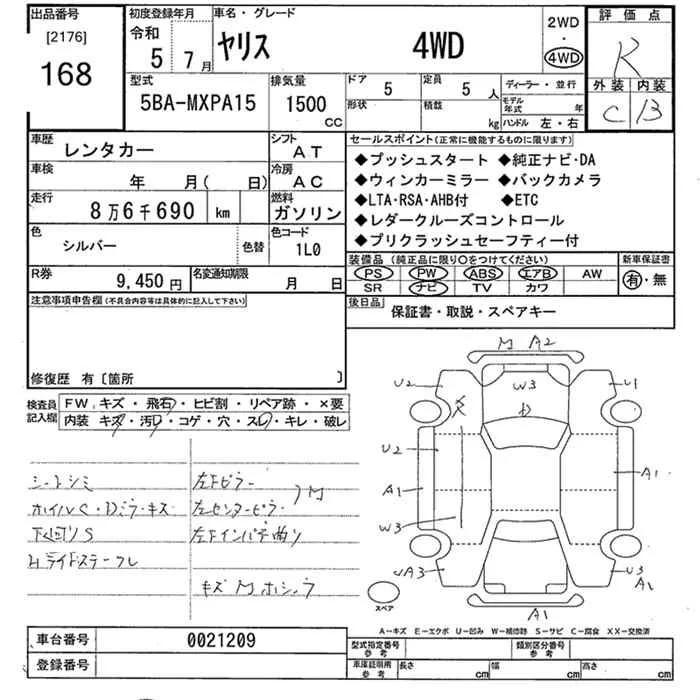 出品番号
[2176]
168
初度登録年月
令和
5 7月
車名・グレード
ヤリス 4WD
2WD
・
4WD
評価点
R
外装 内装
C B
型式
5BA-MXPA15
排気量
1500 CC
ドア 5
形状
定員 5 人
積載 kg
ディーラー・並行
モデル年式 年
ハンドル 左・右
車歴
レンタカー
シフト
AT
車検
年 月( 日)
冷房
AC
走行
8万6千690 km
燃料
ガソリン
色
シルバー
色替
色コード
1L0
R券
9,450円
名変通知期限
月 日
セールスポイント(正常に機能するものに限ります)
◆プッシュスタート ◆純正ナビ・DA
◆ウィンカーミラー ◆バックカメラ
◆LTA・RSA・AHB付 ◆ETC
◆レダークルーズコントロール
◆プリクラッシュセーフティー付
装備品(純正品に限り○をつけてください)
新車保証書
PS PW ABS エアB AW
SR ナビ TV カワ
有・無
後日品
保証書・取説・スペアキー
注意事項申告欄(不具合内容等は具体的に記入して下さい)
修復歴 有〔箇所 〕
検査員記入欄
FW、キズ・飛石・ヒビ割・リペア跡・×要
内装 キズ・汚レ・コゲ・穴・スレ・キレ・破レ
シートシミ
ホイルC・Dミラーキズ
下回りS
左Fピラー
左センターピラー
M
左Fインパチ曲り
キズ M
M A2
U2
W3
U1
U2
A1
W3
A1
A3
U3
A1
A1
スペア
A－キズ E－エクボ U－凹み W－補修跡 S－サビ C－腐食 XX－交換済
車台番号
0021209
登録番号
型式指定番号
参考
類別区分番号
参考
車庫証明用
参考
長さ cm
幅 cm
高さ cm